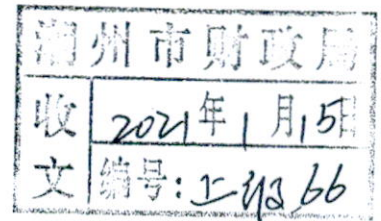 潮州市财政局
收文
2021年1月15日
编号:上级66